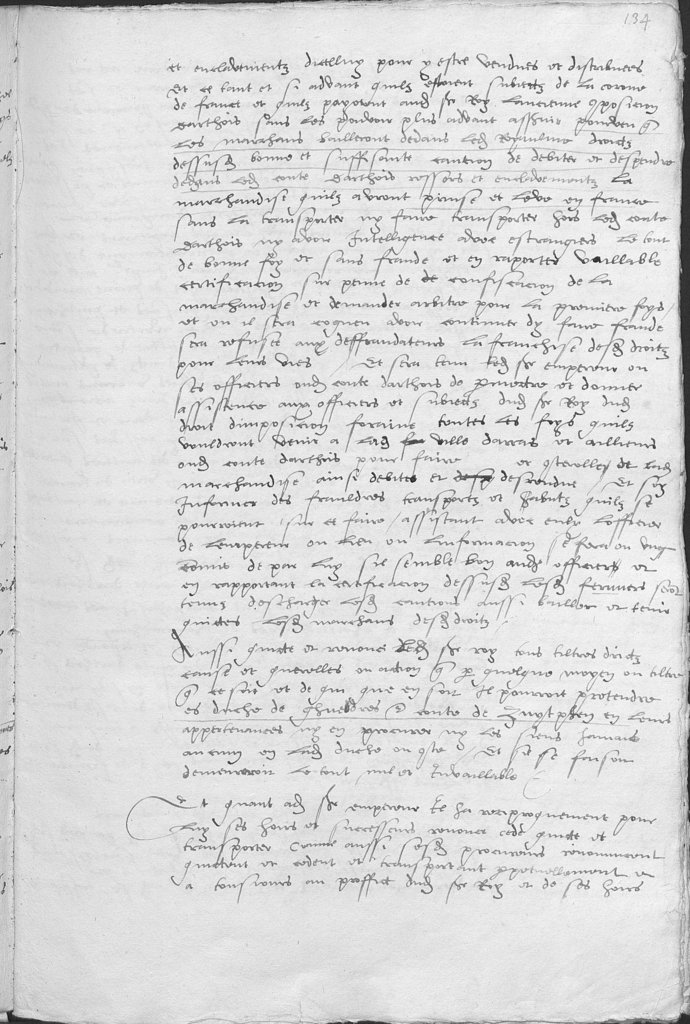 134
et enclavementz dicelluy pour y estre vendues et distribuees
et ce tant et si advant quilz estoient subiectz de la couronne
de france et quilz payoient aud sr Roy lancienne imposicion
darthois sans les pouvoir plus advant asseoir pourveu q
les marchans bailleront dedans led Royaulme droictz
dessusd bonne et suffisante caution de debiter et despendre
dedans led conte darthois ressors et enclavementz la
marchandise quilz auront prinse et levee en france
sans la transporter ny faire transporter hors led conte
darthois ny avoir Intelligence avec estrangiers le tout
de bonne foy et sans fraude et en raporter vaillable
certificacion sur peine de de confiscacion de la
marchandise et demander arbitre pour la premiere foys /
et ou il sera cogneu avoir continuer dy faire fraude
sera refuse aux deffraudateurs la franchise desd droictz
pour leurs vies / Et sera tenu led sr empereur ou
ses officiers oud conte darthois de permectre et donner
assistence aux officiers et subiectz dud sr Roy dud
droit dimposicion foraine toutes les foys quilz
vouldront venir a lad ville darras et ailleurs
oud conte darthois pour faire et querelles de lad
marchandise ainsi debitee et despendue / Et sy
Informer des fraulldres transportz et quilz se
pourroient sur ce faire / assistant avec eulx lofficier
de lempereur ou lieu ou linformacion se fera ou ung
commis de par luy sil semble bon ausd officiers et
en rapportant la certificacion dessusd lesd fermiers seront
tenuz descharger lesd cautions aussi bailler et tenir
quictes lesd marchans desd droitz /
Aussi quicte et renonce led sr roy tous tiltres droictz
cause et querelles ou action q par quelque moyen ou tiltre
q ce soit et de qui que en soit Il pourroit pretendre
es duche de Ghueldres & conte de Zuytphen en leurs
appertenances ny en procurer ny les siens jamais
aucun en lad duche ou conte / Et si se faisoit
demeureroit le tout nul et Invaillable /
Et quant aud sr empereur Il ha reciproquement pour
luy ses hoirs et successeurs renonce cede quicte et
transporter comme aussi sesd procureurs renonncent
quictent et cedent et transportant perpetuellement et
a tousiours au proffit dud sr Roy et de ses hoirs